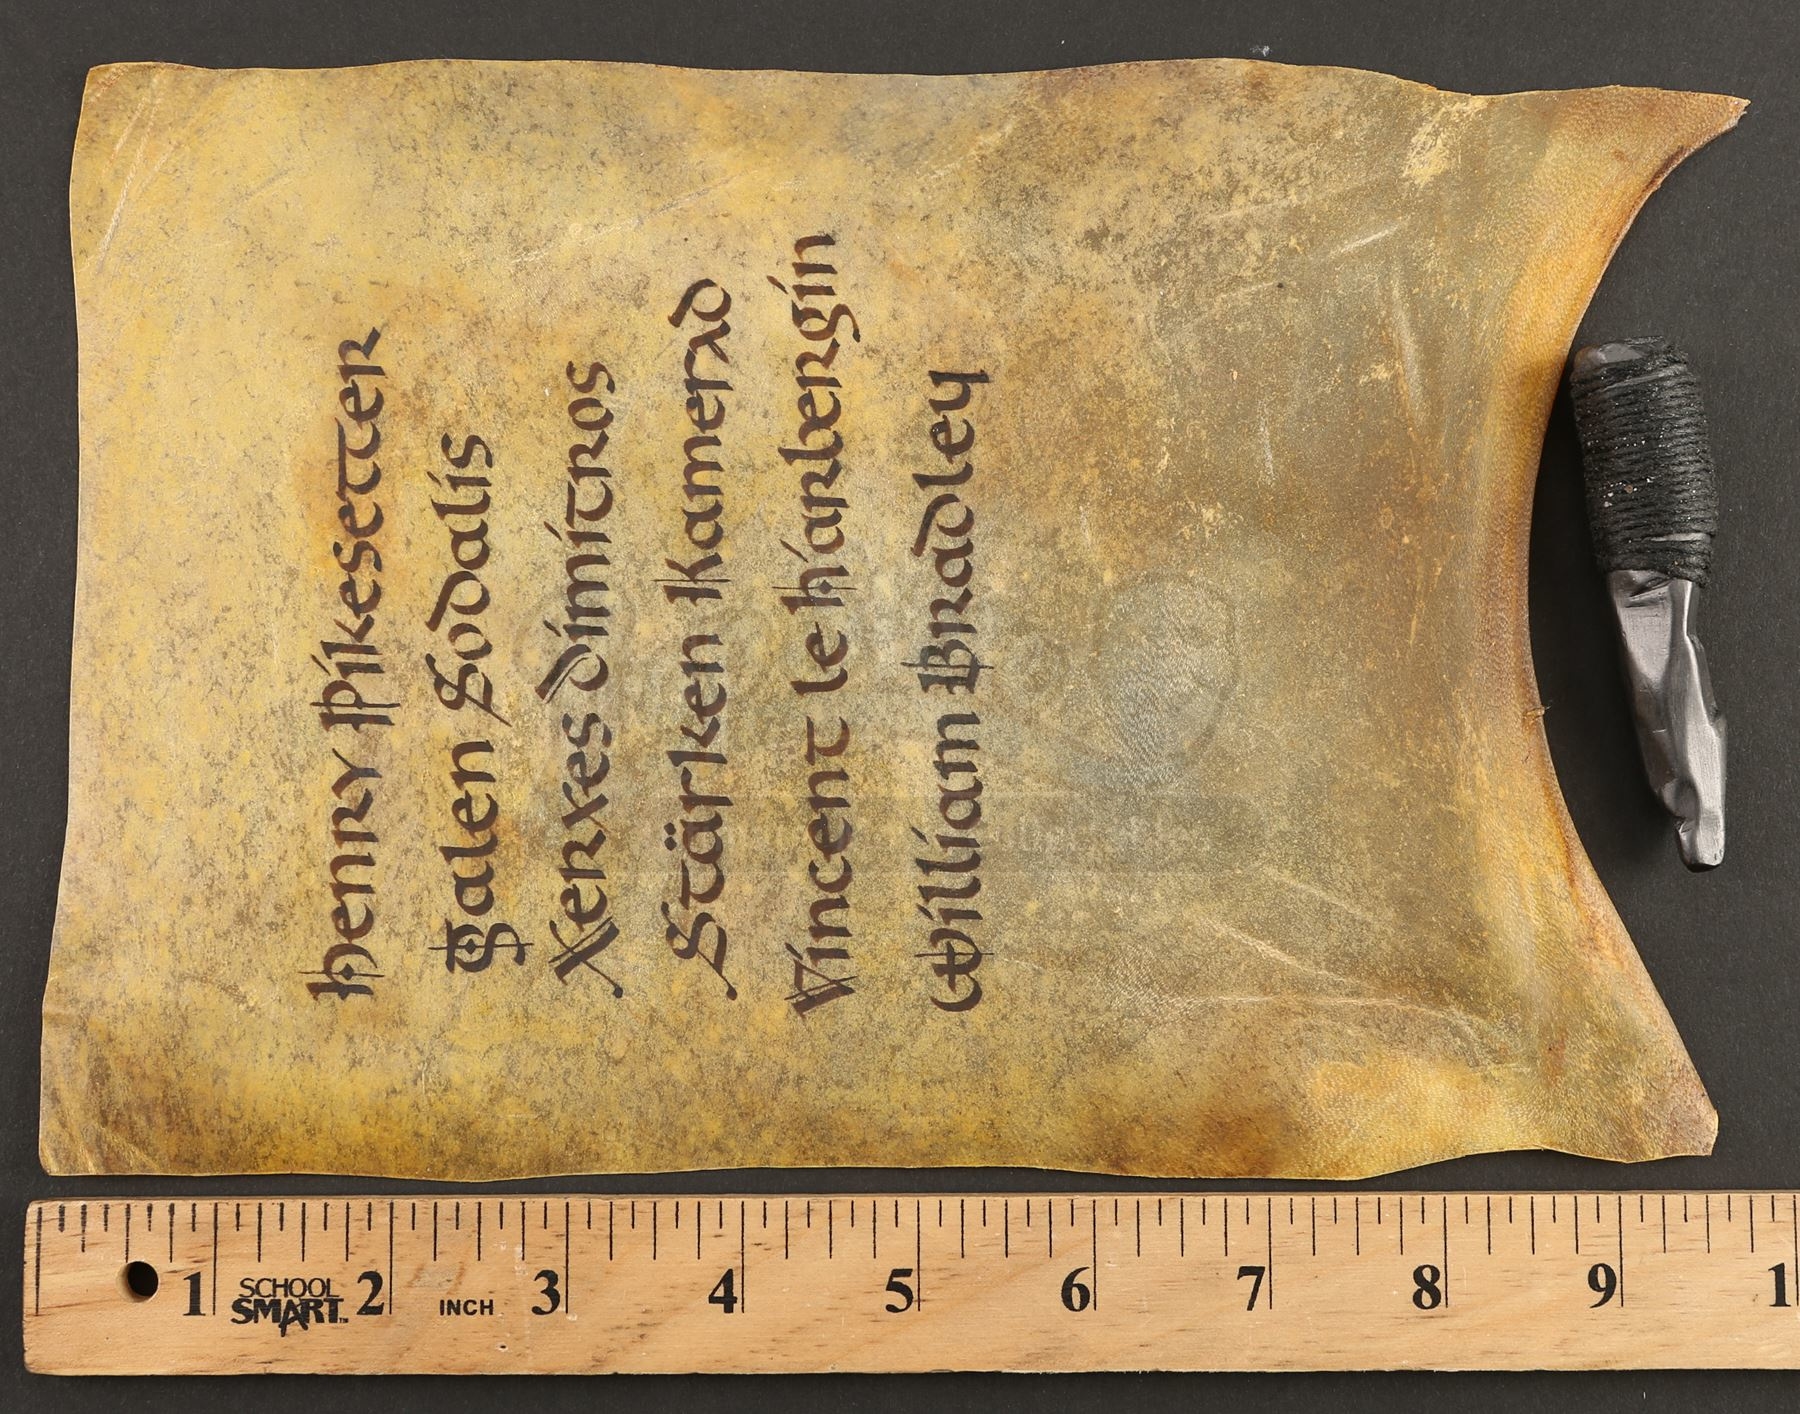 Henry Pikesetter
Galen Sodalis
Xerxes Dimitros
Stärken Kamerad
Vincent le Harbergin
William Bradley
1 2 3 4 5 6 7 8 9 1
SCHOOL
SMART™
INCH